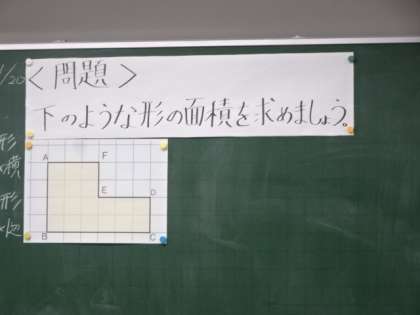 1/20
<問題>
下のような形の面積を求めましょう。
形
積
形
A F
E D
B C